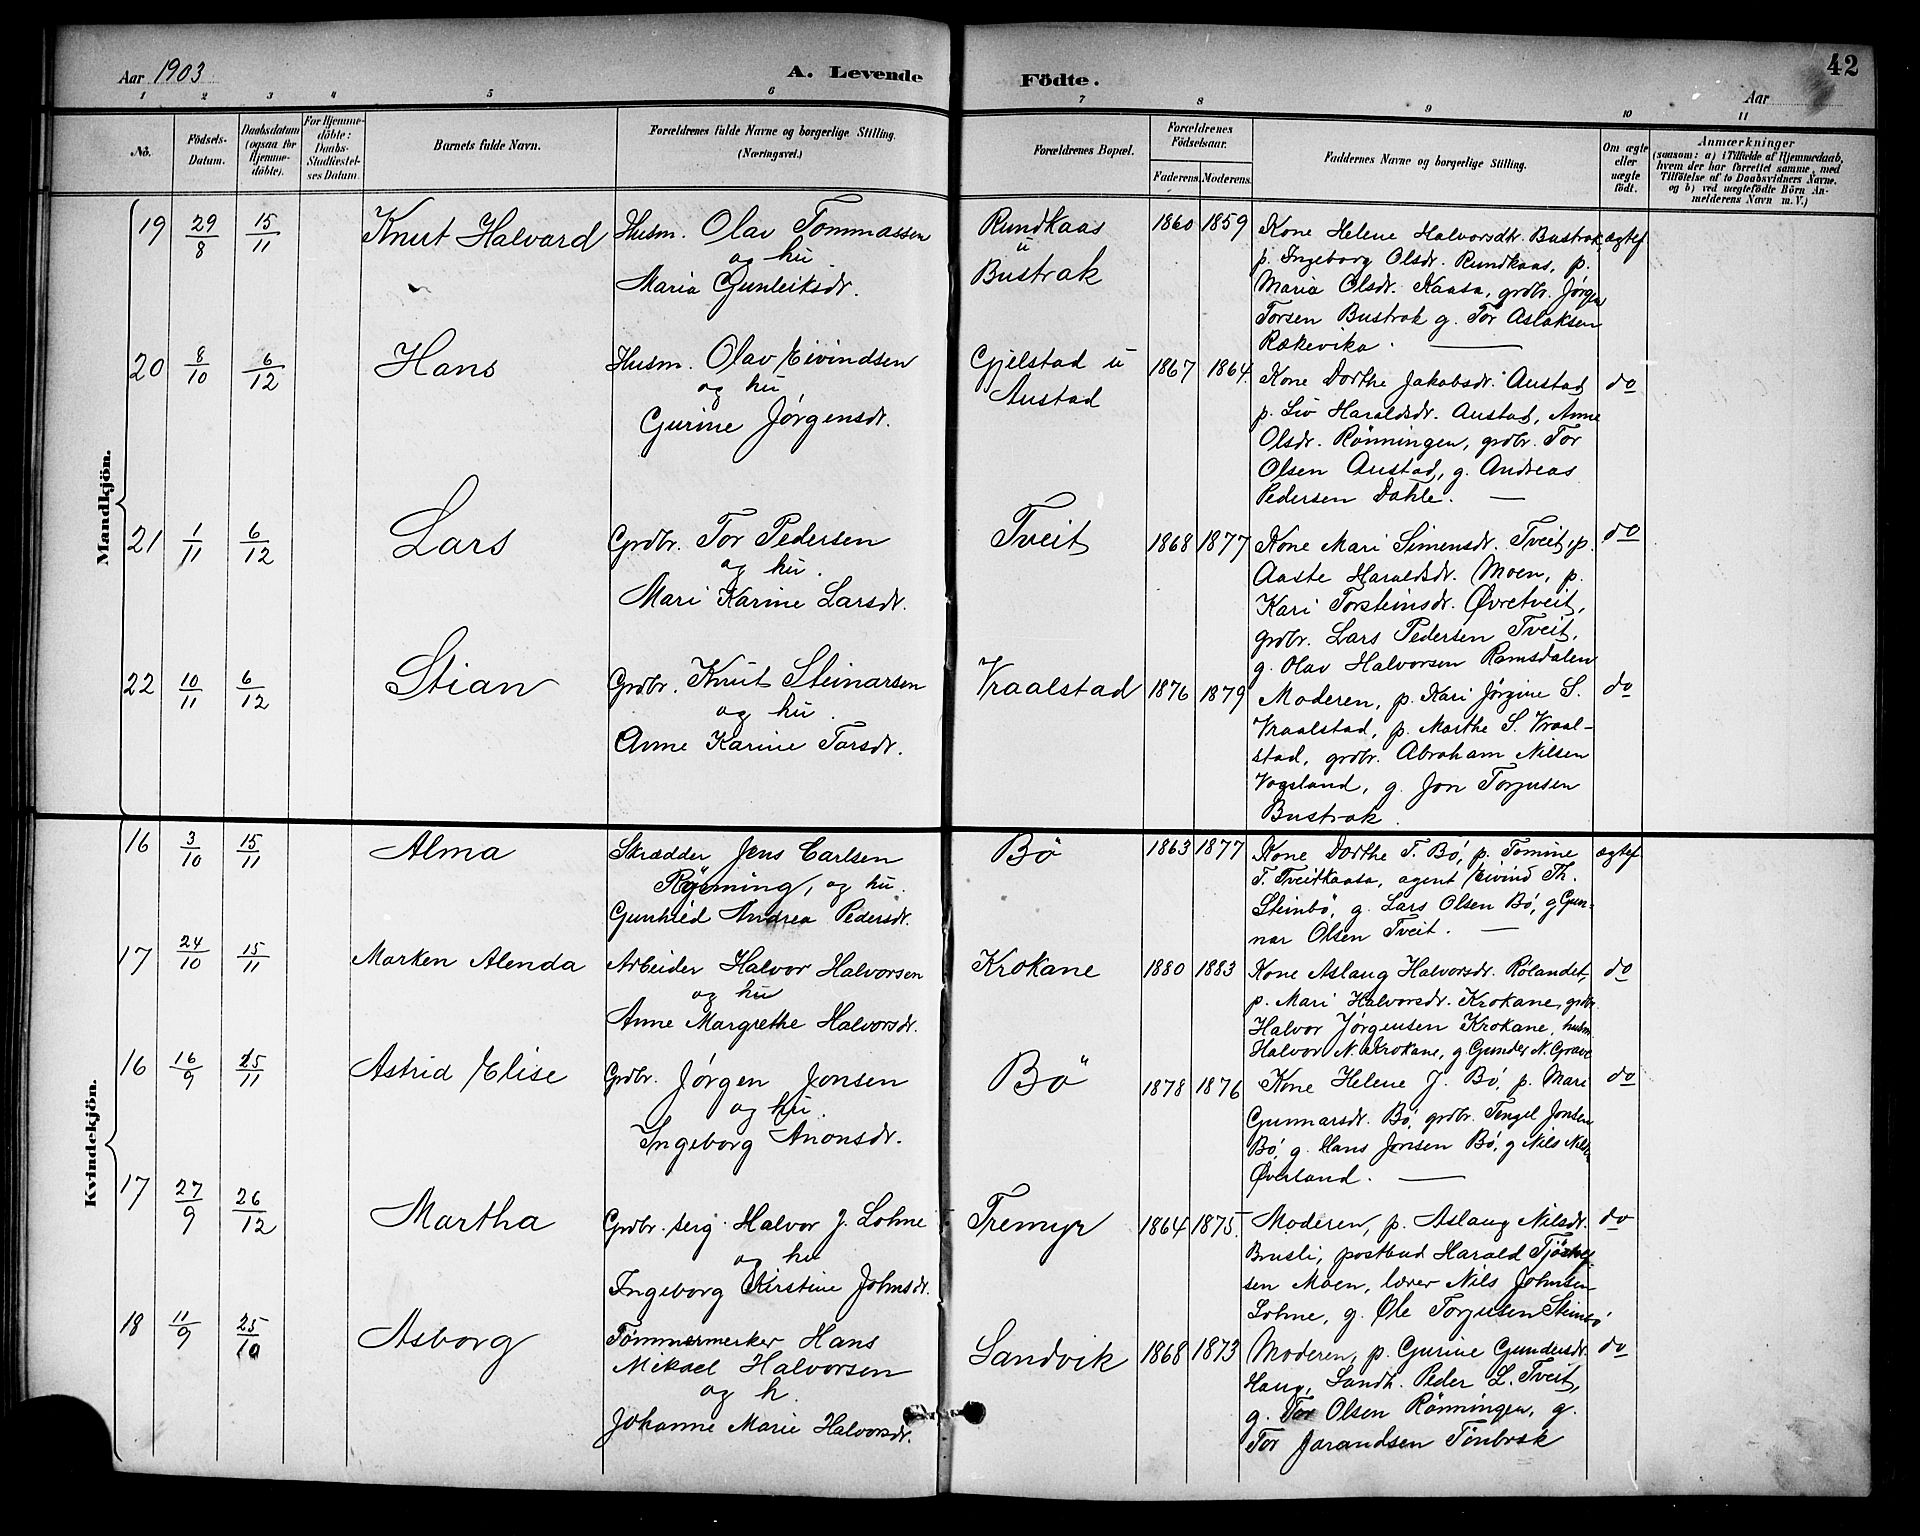 Aar 1903
A. Levende Födte.
Aar
42
1 2 3 4 5 6 7 8 9 10 11
No.
Födsels-
Datum.
Daabsdatum
(ogsaa for
Hjemme-
döbte).
For Hjemme-
döbte:
Daabs-
Stadfæstel-
ses Datum.
Barnets fulde Navn.
Forældrenes fulde Navne og borgerlige Stilling.
(Næringsvei.)
Forældrenes Bopæl.
Forældrenes
Födselsaar.
Faderens. Moderens.
Faddernes Navne og borgerlige Stilling.
Om ægte
eller
uægte
födt.
Anmærkninger
(saasom: a) i Tilfælde af Hjemmedaab,
hvem der har forrettet samme, med
Tilföielse af to Daabsvidners Navne.
og b) ved uægtefödte Börn An-
melderens Navn m. V.)
Mandkjön.
19 29/8 15/11 Knut Halvard
Husm. Olav Tommassen
og hu
Maria Gunleiksdr.
Rundkaas
u
Bustrak
1860 1859
Kone Helene Halvorsdtr. Bustrak,
p. Ingeborg Olsdr. Rundkaas, p.
Maria Olsdr. Kaasa, grdbr. Jørgen
Torsen Bustrak g. Tor Aslaksen
Rækevika.
ægtef
20 8/10 6/12 Hans
Husm. Olav Eivindsen
og hu
Gurine Jørgensdr.
Gjelstad u
Austad
1867 1864
Kone Dorthe Jakobsdr. Austad
p. Liv Haraldsdr. Austad, Anne
Olsdr. Rönningen, grdbr. Tor
Olsen Austad, g. Andreas
Pedersen Dahle.
do
21 1/11 6/12 Lars
Grdbr. Tor Pedersen
og hu.
Mari Karine Larsdr.
Tveit
1868 1877
Kone Mari Simensdr. Tveit, p.
Aaste Haraldsdr. Moen, p.
Kari Torsteinsdr. Øvretveit,
grdbr. Lars Pedersen Tveit,
g. Olav Halvorsen Ramsdalen
do
22 10/11 6/12 Stian
Grdbr. Knut Steinarsen
og hu.
Anne Karine Torsdr.
Vraalstad
1876 1879
Moderen, p. Kari Jørgine S.
Vraalstad, p. Marthe S. Vraal-
stad, grdbr. Abraham Nilsen
Vogsland, g. Jon Torjusen
Bustrak.
do
Kvindekjön.
16 3/10 15/11 Alma
Skrædder Jens Carlsen
og hu.
Gunhild Andrea Pedersdr.
Bö
1863 1877
Kone Dorthe T. Bö, p. Tomine
T. Tveitkaasa, agent Eivind Th.
Steinbö, g. Lars Olsen Bö, g Gun-
nar Olsen Tveit.
ægtef
17 24/10 15/11 Marken Alenda
Arbeider Halvor Halvorsen
og hu
Anne Margrethe Halvorsdr.
Krokane
1880 1883
Kone Aslaug Halvorsdr. Rölandet,
p. Mari Halvorsdr. Krokane, grdbr.
Halvor Jørgensen Krokane, husm.
Halvor N. Krokane, g Gunder N. Grave
do
16 16/9 25/11 Astrid Elise
Grdbr. Jørgen Jonsen
og hu.
Ingeborg Anonsdr.
Bö
1878 1876
Kone Helene J. Bö, p. Mari
Gunnarsdr. Bö, grdbr. Tengel Jonsen
Bö, g. Hans Jonsen Bö, g Nils Nilsen
Øverland.
do
17 27/9 26/12 Martha
Grdbr. serg. Halvor J. Lohne
og hu
Ingeborg Kirstine Johnsdr.
Tremyr
1864 1875
Moderen, p. Aslaug Nilsdr.
Brusli, postbud Harald
sen Moen, lærer Nils Johnsen
Lohne, g. Ole Torjusen Steinbö
do
18 11/9 25/10 Asborg
Tømmermerker Hans
Mikael Halvorsen
og h.
Johanne Marie Halvorsdr.
Sandvik
1868 1873
Moderen, p. Gurine Gundersdr.
Haug, Landh. Peder L. Tveit,
g. Tor Olsen Rönningen, g.
Tor Jarandsen
do